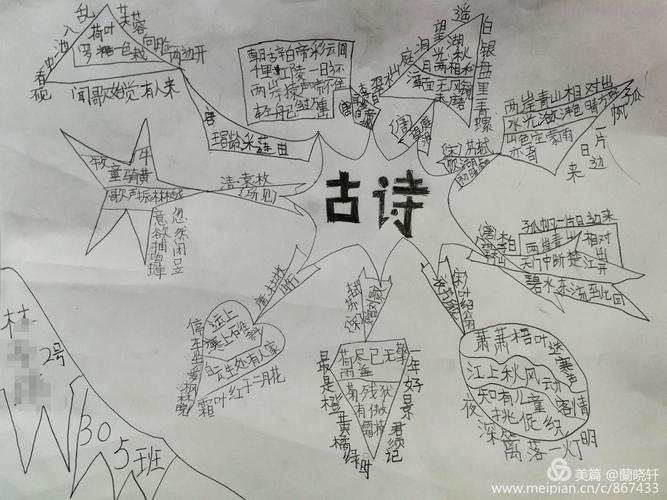 古诗
乱
入
池
中
看
不
荷叶
罗裙一色裁
芙蓉向脸两边开
闻歌始觉有人来
王昌龄采莲曲
朝辞白帝彩云间
江陵一日还
两岸猿声啼不住
轻舟已过万重山
遥望洞庭山水翠
白银盘里一青螺
湖光秋月两相和
潭面无风镜未磨
唐
两岸青山相对出
水光潋滟晴方
山色空蒙雨亦奇
孤帆一片日边来
宋
苏轼
饮湖上
牧童骑黄牛
歌声振林樾
意欲捕鸣蝉
忽然闭口立
清
袁枚
所见
唐
李白
孤帆一片日边来
两岸青山相对
天门中断楚江开
碧水东流至此回
杜牧
山行
远上寒山石径斜
白云生处有人家
停车坐爱枫林晚
霜叶红于二月花
苏轼
宋
荷尽已无擎雨盖
菊残犹有傲霜枝
一年好景君须记
最是橙黄橘绿时
宋
叶绍翁
萧萧梧叶送寒声
江上秋风动客情
知有儿童挑促织
夜深篱落一灯明
林
2号
305班
美篇 @蘭晓轩
www.meipian.cn/c/867433